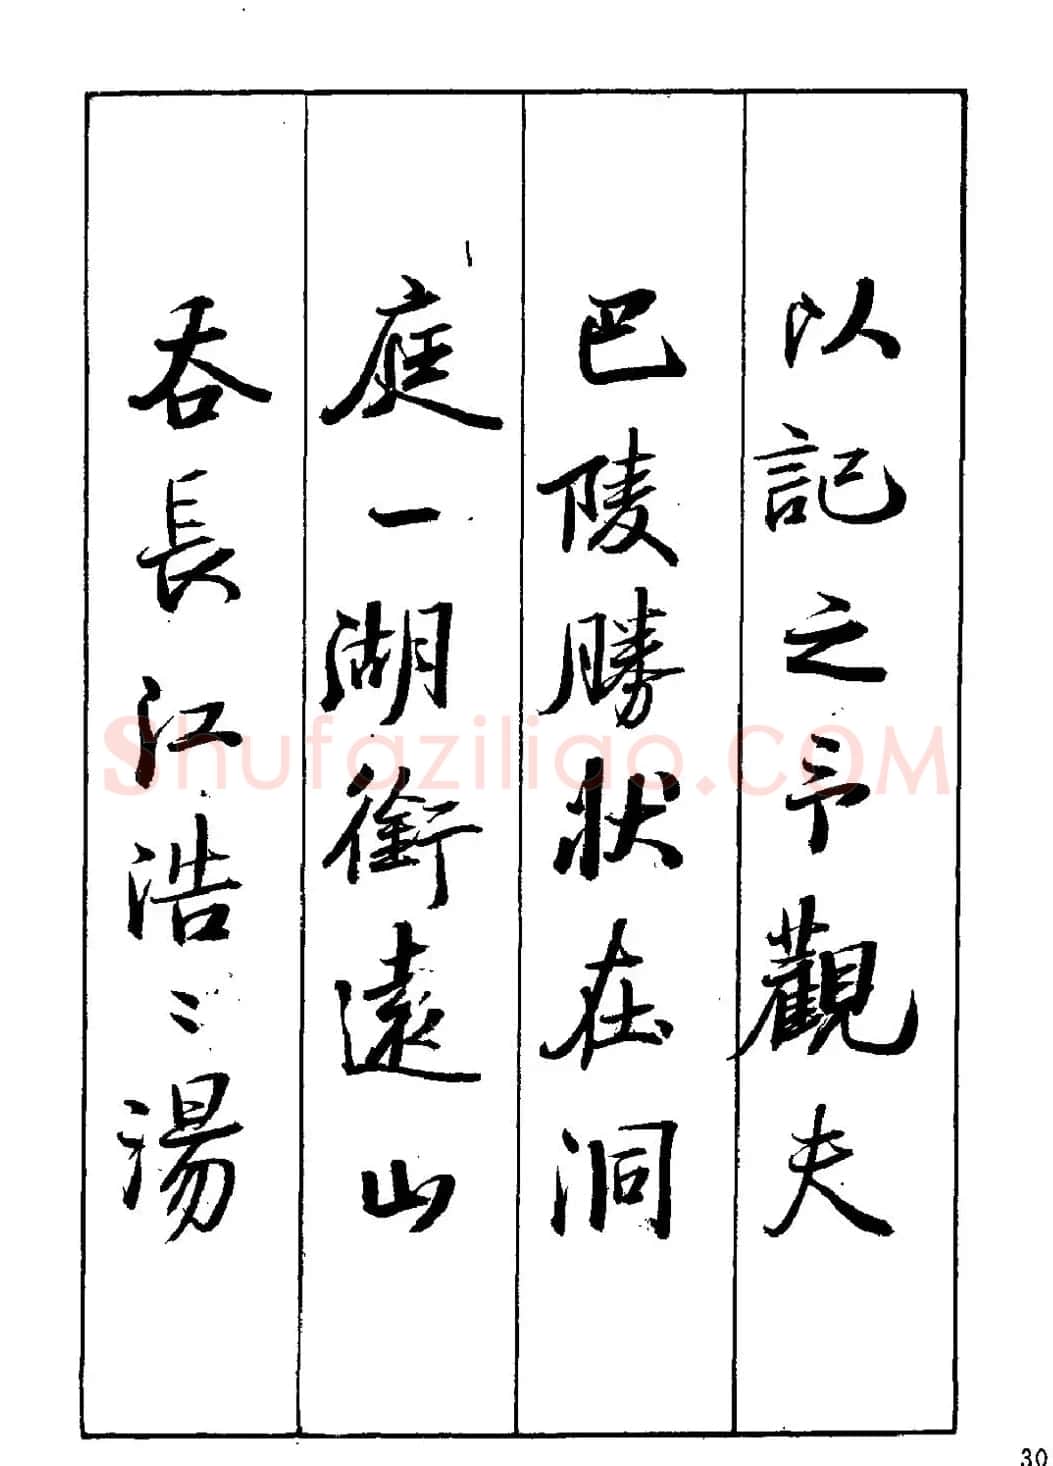 以記之予觀夫
巴陵勝狀在洞
庭一湖銜遠山
吞長江浩〻湯
Shufaziliao.COM
30